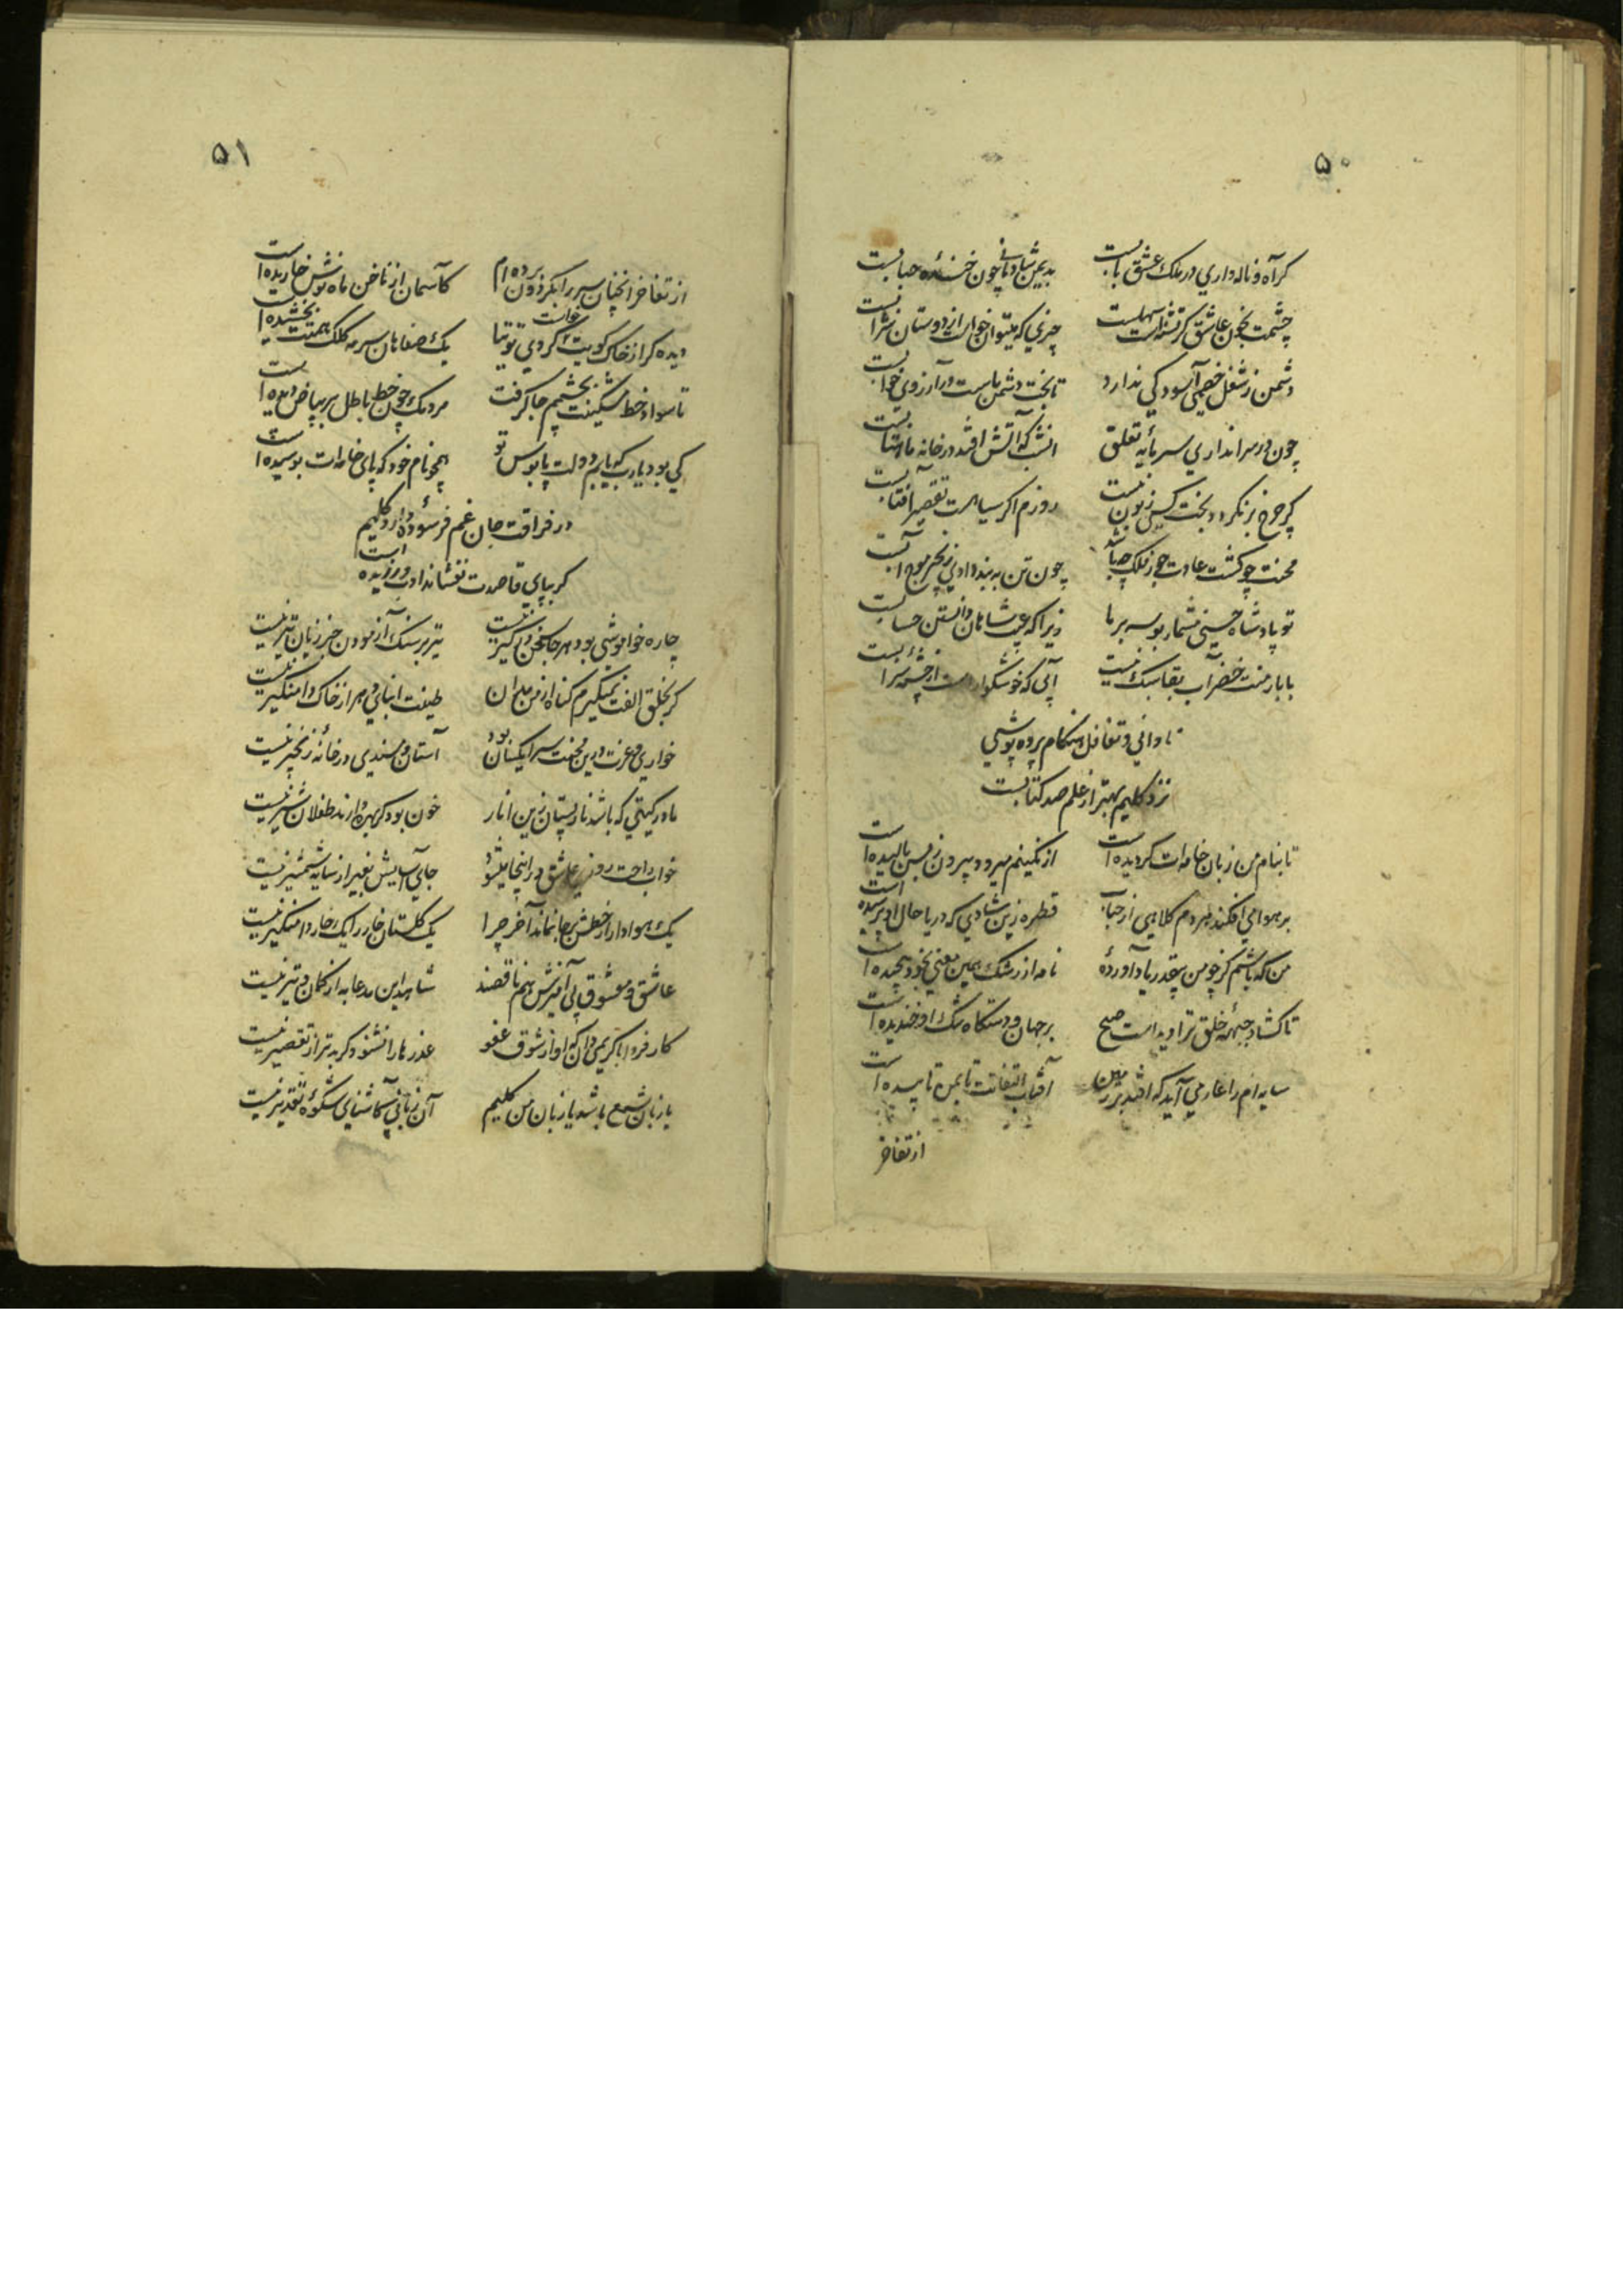 ۵۰
کر آه و ناله داری در ملک عشق بابست
بدیمن شادمانی چون خنده حبابست
چشمت بخون عاشق کر تشنه است سهلست
چیزی که میتوان خواست از دوستان شرابست
دشمن ز شغل خصمی آسودکی ندارد
تا بخت دشمن ماست در آرزوی خوابست
چون در سرا نداری سرمایه تعلق
آتش که افتد در خانه ماهتابست
کر چرخ برنکردد بخت کسی زبون نیست
روزم اکر سیاهست تقصیر آفتابست
محنت چو کشت عادت رنج از فلک چه باشد
چون تن به بند دادی زنجیر موج آبست
تو پادشاه حسنی مشمار بوسه بر ما
زیرا که عیب شاهان دانستن حسابست
با بار منت خضر آب بقا سبک نیست
آبی که خوشکوار است از چشمه سرابست
نادانی و تغافل هنکام پرده پوشی
نزد کلیم بهتر از علم صد کتابست
تا بنام من زبان خامه‌ات کردیده است
از نکینم میرود بیرون ز بس بالیده است
بر هوا می افکند هر دم کلاهی از حباب
قطره زین شادی که دریا حال او پرسیده است
من که باشم کز چو من بیقدر یاد آورده
نامه از رشک همین معنی بخود پیچیده است
تا کشاد جبهه خلق ترا دیده است صبح
بر جهان و دستکاه تنک او خندیده است
سایه‌ام را عار می آید که افتد بر زمین
آفتاب التفاتت تا بمن تابیده است
از تفاخر
۵۱
از تفاخر آنچنان سر را بکردون برده‌ام
کآسمان از ناخن ماه نوش خاریده است
دیده کر از خاک کویت کردی توتیا خواست
یک صفاهان سرمه کلک همتت بخشیده است
تا سواد خط مشکینت بچشمم جا کرفت
مردمک چون خط باطل بر بیاض دیده است
کی بود یارب که یابم دولت پابوس تو
همچو نام خود که پای خامه‌ات بوسیده است
در فراقت جان غم فرسوده دارد کلیم
کر بپای قاصدت نفشاند ادب ورزیده است
چاره خواموشی بود هر جا سخن درکیر نیست
تیر بر سنک آزمودن جز زیان تیر نیست
کر بخلق الفت نمیکیرم کناه از من مدان
طینت ابنای دهر از خاک دامنکیر نیست
خواری و عزت درین محنت سرا یکسان بود
آستان و مسندی در خانه زنجیر نیست
مادر کیتی که باشد نار پستان زین انار
خون بود کر بهره دارند طفلان شیر نیست
خواب راحت روزی عاشق در اینجا میشود
جای آسایش بغیر از سایه شمشیر نیست
یک هوادار از خطش بر جا نماند آخر چرا
یک کلستان خار را یک خار دامنکیر نیست
عاشق و معشوق بی آمیزش هم ناقصند
شاهد این مدعا به از کمان و تیر نیست
کار فردا با کریمی دان که او از شوق عفو
عذر ما را نشنود کر بدتر از تقصیر نیست
با زبان شمع باشد یا زبان من کلیم
آن زبانی کآشنای شکوه تقدیر نیست